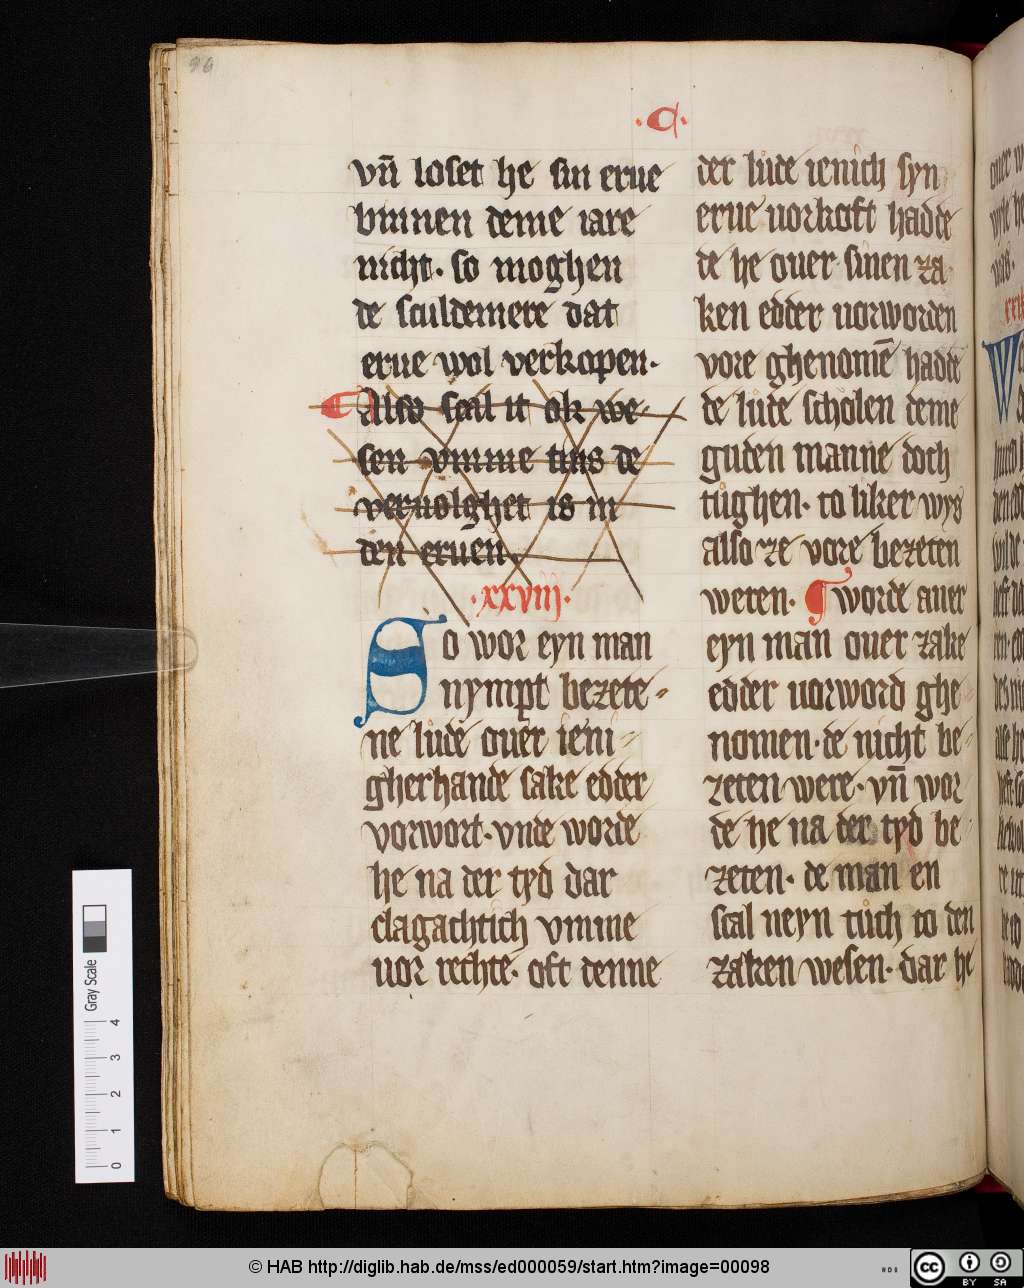 96
·C·
vn̄ loset he sin erue
vmmen deme iare
nicht· so moghen
de sculdenere dat
erue wol verkopen·
¶ Also scal it ok we-
sen vmme tins de
veruolghet is in
den eruen·
·xxviij·
So wor eyn man
nympt bezete-
ne lude ouer ieni-
gherhande sake edder
vorwort· vnde worde
he na der tyd dar
clagachtich vmme
uor rechte· oft denne
der lude ienich syn
erue uorkoft hadde
de he ouer sinen za-
ken edder uorworden
vore ghenomē hadde
de lude scholen deme
guden manne doch
tughen· to liker wys
also ze vore bezeten
weren· ¶ worde auer
eyn man ouer zake
edder uorword ghe-
nomen· de nicht be-
zeten were· vn̄ wor-
de he na der tyd be-
zeten· de man en
scal neyn tuch to den
zaken wesen· dar he
Gray Scale
0 1 2 3 4
© HAB http://diglib.hab.de/mss/ed000059/start.htm?image=00098
cc BY SA